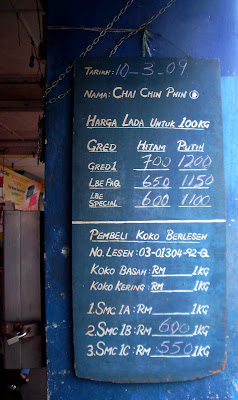 TARIKH: 10-3-09
NAMA: CHAI CHIN PHIN
HARGA LADA UNTUK 100KG
GRED HITAM PUTIH
GRED 1 700 1200
LBE FAQ 650 1150
LBE SPECIAL 600 1100
PEMBELI KOKO BERLESEN
NO. LESEN: 03-01304-92-Q
KOKO BASAH: RM ____ 1KG
KOKO KERING: RM ____ 1KG
1. SMC 1A: RM ____ 1KG
2. SMC 1B: RM 600 1KG
3. SMC 1C: RM 550 1KG